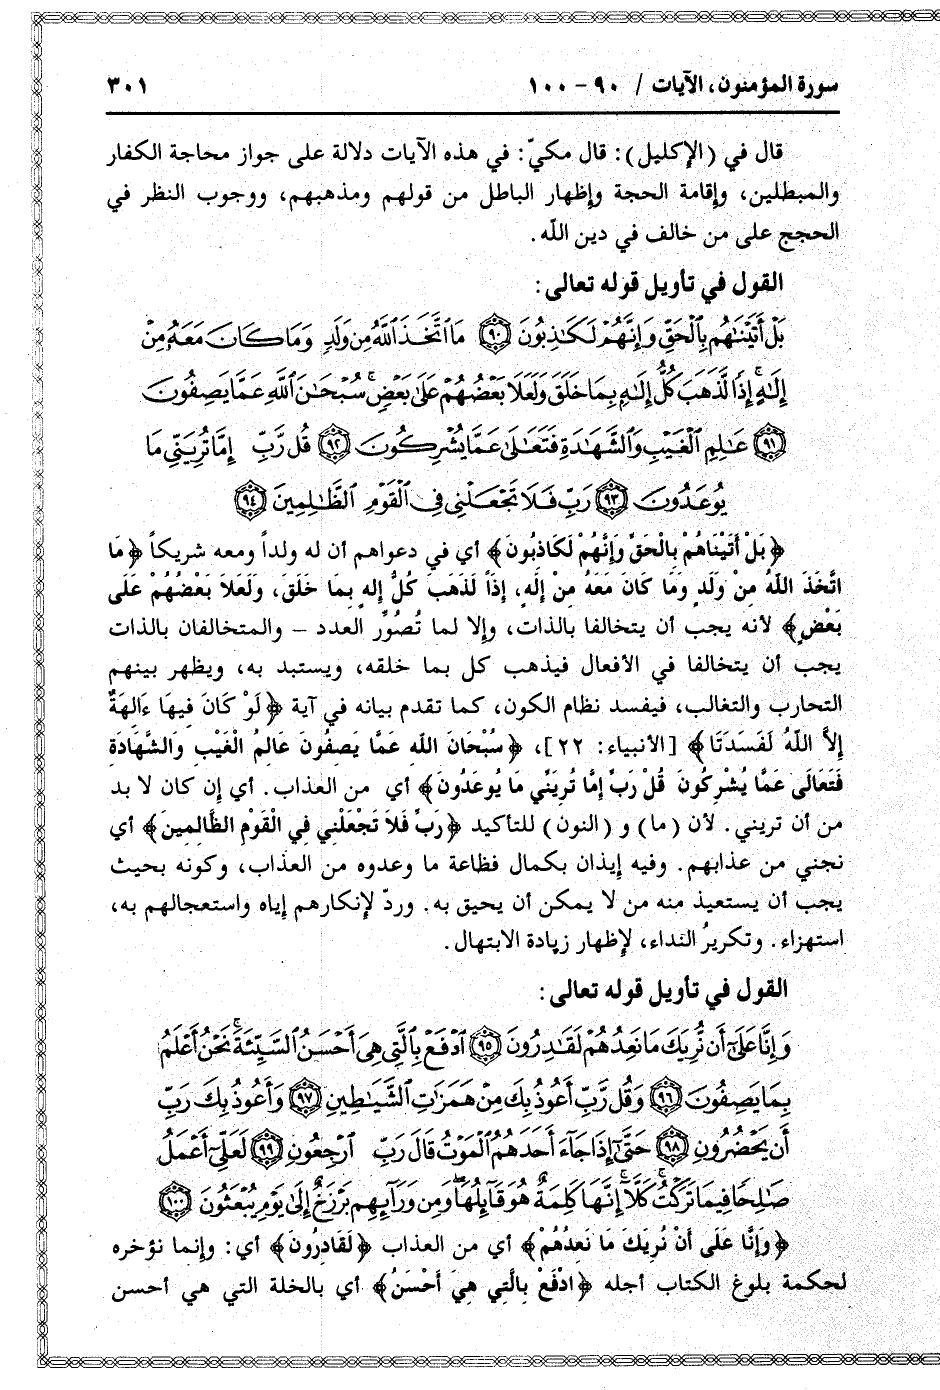 سورة المؤمنون، الآيات / ٩٠ - ١٠٠ ٣٠١
قال في (الإكليل): قال مكيّ: في هذه الآيات دلالة على جواز محاجة الكفار
والمبطلين، وإقامة الحجة وإظهار الباطل من قولهم ومذهبهم، ووجوب النظر في
الحجج على من خالف في دين اللّه.
القول في تأويل قوله تعالى:
بَلْ أَتَيْنَٰهُم بِٱلْحَقِّ وَإِنَّهُمْ لَكَٰذِبُونَ ٩٠ مَا ٱتَّخَذَ ٱللَّهُ مِن وَلَدٍ وَمَا كَانَ مَعَهُۥ مِنْ
إِلَٰهٍ ۚ إِذًا لَّذَهَبَ كُلُّ إِلَٰهٍۭ بِمَا خَلَقَ وَلَعَلَا بَعْضُهُمْ عَلَىٰ بَعْضٍ ۚ سُبْحَٰنَ ٱللَّهِ عَمَّا يَصِفُونَ
٩١ عَٰلِمِ ٱلْغَيْبِ وَٱلشَّهَٰدَةِ فَتَعَٰلَىٰ عَمَّا يُشْرِكُونَ ٩٢ قُل رَّبِّ إِمَّا تُرِيَنِّي مَا
يُوعَدُونَ ٩٣ رَبِّ فَلَا تَجْعَلْنِي فِي ٱلْقَوْمِ ٱلظَّٰلِمِينَ ٩٤
﴿بَلْ أَتَيْنَاهُمْ بِالْحَقِّ وَإِنَّهُمْ لَكَاذِبُونَ﴾ أي في دعواهم أن له ولداً ومعه شريكاً ﴿مَا
اتَّخَذَ اللَّهُ مِنْ وَلَدٍ وَمَا كَانَ مَعَهُ مِنْ إِلَهٍ، إِذَاً لَذَهَبَ كُلُّ إِلهٍ بِمَا خَلَقَ، وَلَعَلاَ بَعْضُهُمْ عَلَى
بَعْضٍ﴾ لأنه يجب أن يتخالفا بالذات، وإلا لما تُصُوِّر العدد – والمتخالفان بالذات
يجب أن يتخالفا في الأفعال فيذهب كل بما خلقه، ويستبد به، ويظهر بينهم
التحارب والتغالب، فيفسد نظام الكون، كما تقدم بيانه في آية ﴿لَوْ كَانَ فِيهَا ءَالِهَةٌ
إِلاَّ اللَّهُ لَفَسَدَتَا﴾ [الأنبياء: ٢٢]، ﴿سُبْحَانَ اللَّهِ عَمَّا يَصِفُونَ عَالِمُ الْغَيْبِ وَالشَّهَادَةِ
فَتَعَالَى عَمَّا يُشْرِكُونَ قُلْ رَبِّ إِمَّا تُرِيَنِّي مَا يُوعَدُونَ﴾ أي من العذاب. أي إن كان لا بد
من أن تريني. لأن (ما) و (النون) للتأكيد ﴿رَبِّ فَلاَ تَجْعَلْنِي فِي الْقَوْمِ الظَّالِمِينَ﴾ أي
نجني من عذابهم. وفيه إيذان بكمال فظاعة ما وعدوه من العذاب، وكونه بحيث
يجب أن يستعيذ منه من لا يمكن أن يحيق به. وردّ لإنكارهم إياه واستعجالهم به،
استهزاء. وتكريرُ النداء، لإظهار زيادة الابتهال.
القول في تأويل قوله تعالى:
وَإِنَّا عَلَىٰٓ أَن نُّرِيَكَ مَا نَعِدُهُمْ لَقَٰدِرُونَ ٩٥ ٱدْفَعْ بِٱلَّتِي هِيَ أَحْسَنُ ٱلسَّيِّئَةَ ۚ نَحْنُ أَعْلَمُ
بِمَا يَصِفُونَ ٩٦ وَقُل رَّبِّ أَعُوذُ بِكَ مِنْ هَمَزَٰتِ ٱلشَّيَٰطِينِ ٩٧ وَأَعُوذُ بِكَ رَبِّ
أَن يَحْضُرُونِ ٩٨ حَتَّىٰٓ إِذَا جَآءَ أَحَدَهُمُ ٱلْمَوْتُ قَالَ رَبِّ ٱرْجِعُونِ ٩٩ لَعَلِّيٓ أَعْمَلُ
صَٰلِحًا فِيمَا تَرَكْتُ ۚ كَلَّآ ۚ إِنَّهَا كَلِمَةٌ هُوَ قَآئِلُهَا ۖ وَمِن وَرَآئِهِم بَرْزَخٌ إِلَىٰ يَوْمِ يُبْعَثُونَ ١٠٠
﴿وَإِنَّا عَلَى أَنْ نُرِيَكَ مَا نَعِدُهُمْ﴾ أي من العذاب ﴿لَقَادِرُون﴾ أي: وإنما نؤخره
لحكمة بلوغ الكتاب أجله ﴿ادْفَعْ بِالَّتِي هِيَ أَحْسَنُ﴾ أي بالخلة التي هي أحسن